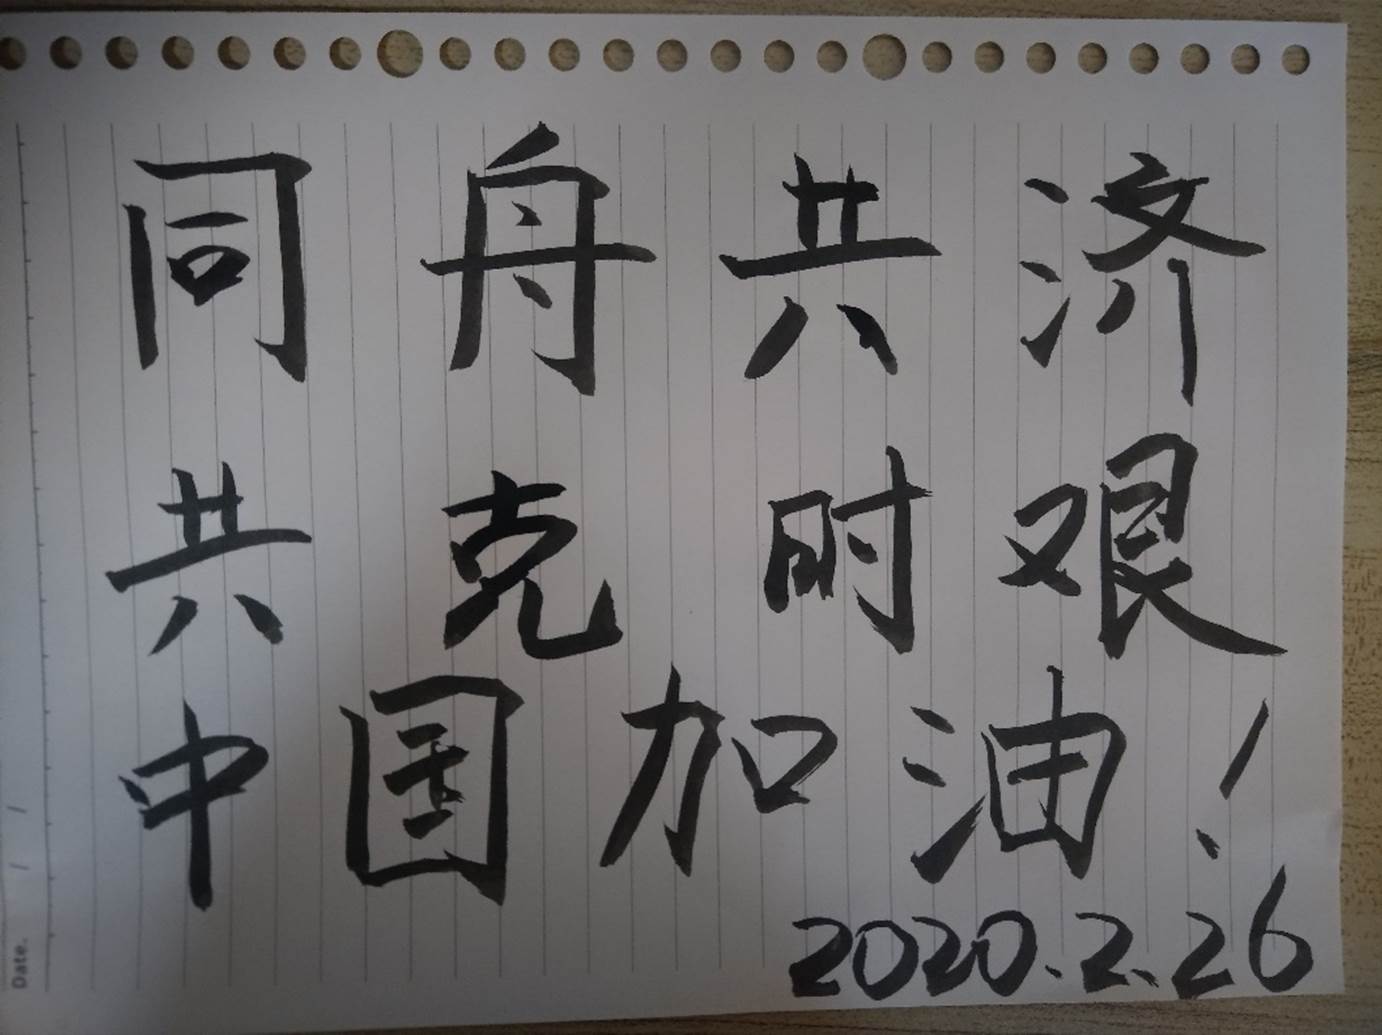 同舟共济
共克时艰
中国加油！
2020.2.26
Date. / /